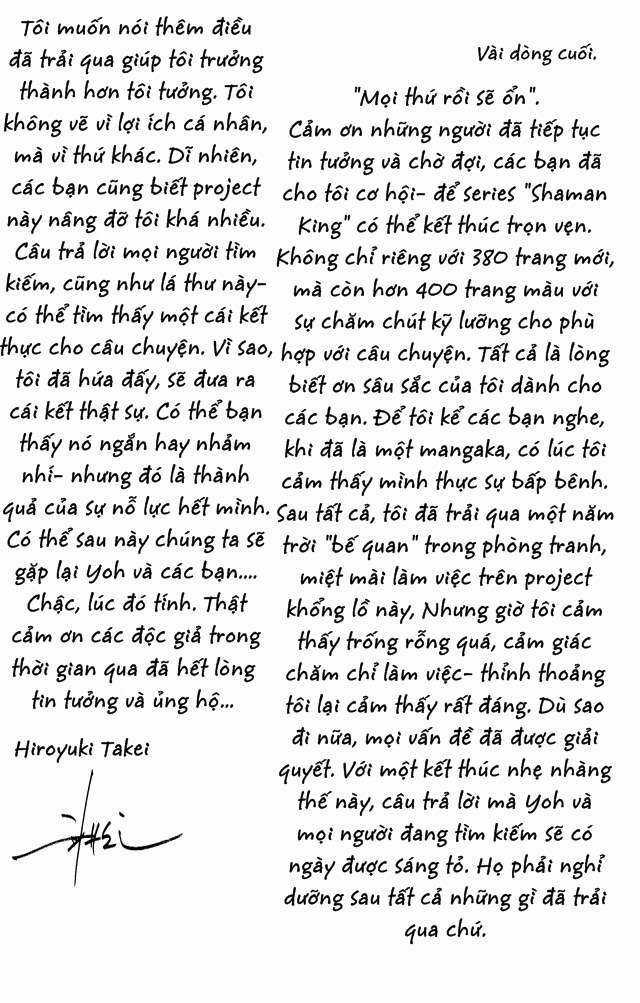 Vài dòng cuối.
"Mọi thứ rồi sẽ ổn".
Cảm ơn những người đã tiếp tục
tin tưởng và chờ đợi, các bạn đã
cho tôi cơ hội- để series "Shaman
King" có thể kết thúc trọn vẹn.
Không chỉ riêng với 380 trang mới,
mà còn hơn 400 trang màu với
sự chăm chút kỹ lưỡng cho phù
hợp với câu chuyện. Tất cả là lòng
biết ơn sâu sắc của tôi dành cho
các bạn. Để tôi kể các bạn nghe,
khi đã là một mangaka, có lúc tôi
cảm thấy mình thực sự bấp bênh.
Sau tất cả, tôi đã trải qua một năm
trời "bế quan" trong phòng tranh,
miệt mài làm việc trên project
khổng lồ này, Nhưng giờ tôi cảm
thấy trống rỗng quá, cảm giác
chăm chỉ làm việc- thỉnh thoảng
tôi lại cảm thấy rất đáng. Dù sao
đi nữa, mọi vấn đề đã được giải
quyết. Với một kết thúc nhẹ nhàng
thế này, câu trả lời mà Yoh và
mọi người đang tìm kiếm sẽ có
ngày được sáng tỏ. Họ phải nghỉ
dưỡng sau tất cả những gì đã trải
qua chứ.
Tôi muốn nói thêm điều
đã trải qua giúp tôi trưởng
thành hơn tôi tưởng. Tôi
không vẽ vì lợi ích cá nhân,
mà vì thứ khác. Dĩ nhiên,
các bạn cũng biết project
này nâng đỡ tôi khá nhiều.
Câu trả lời mọi người tìm
kiếm, cũng như lá thư này-
có thể tìm thấy một cái kết
thực cho câu chuyện. Vì sao,
tôi đã hứa đấy, sẽ đưa ra
cái kết thật sự. Có thể bạn
thấy nó ngắn hay nhảm
nhí- nhưng đó là thành
quả của sự nỗ lực hết mình.
Có thể sau này chúng ta sẽ
gặp lại Yoh và các bạn....
Chậc, lúc đó tính. Thật
cảm ơn các độc giả trong
thời gian qua đã hết lòng
tin tưởng và ủng hộ...
Hiroyuki Takei